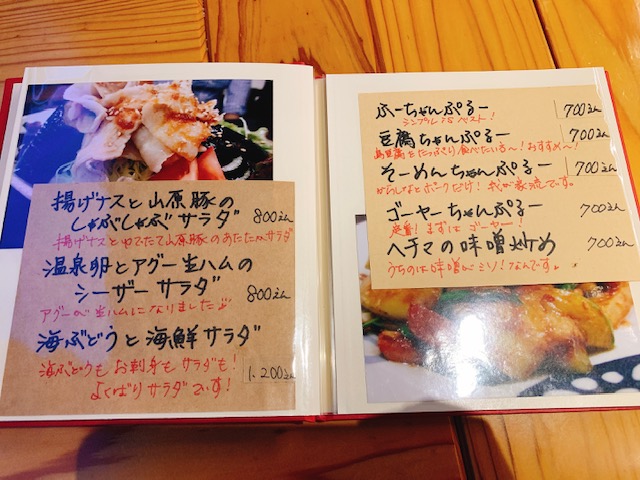 揚げナスと山原豚の
しゃぶしゃぶサラダ 800えん
揚げナスとゆでたて山原豚のあたたかサラダ
温泉卵とアグー生ハムの
シーザーサラダ 800えん
アグーが生ハムになりました
海ぶどうと海鮮サラダ
海ぶどうも お刺身も サラダも!
1,200えん
よくばりサラダです!
ふーちゃんぷるー 700えん
シンプル is ベスト!
豆腐ちゃんぷるー 700えん
島豆腐をたっぷり食べたい方へ!おすすめ〜!
そーめんちゃんぷるー 700えん
からしなとポークだけ! 我が家流です。
ゴーヤーちゃんぷるー 700えん
定番! まずは ゴーヤー!
ヘチマの味噌炒め 700えん
うちのは味噌がミソ!なんです。